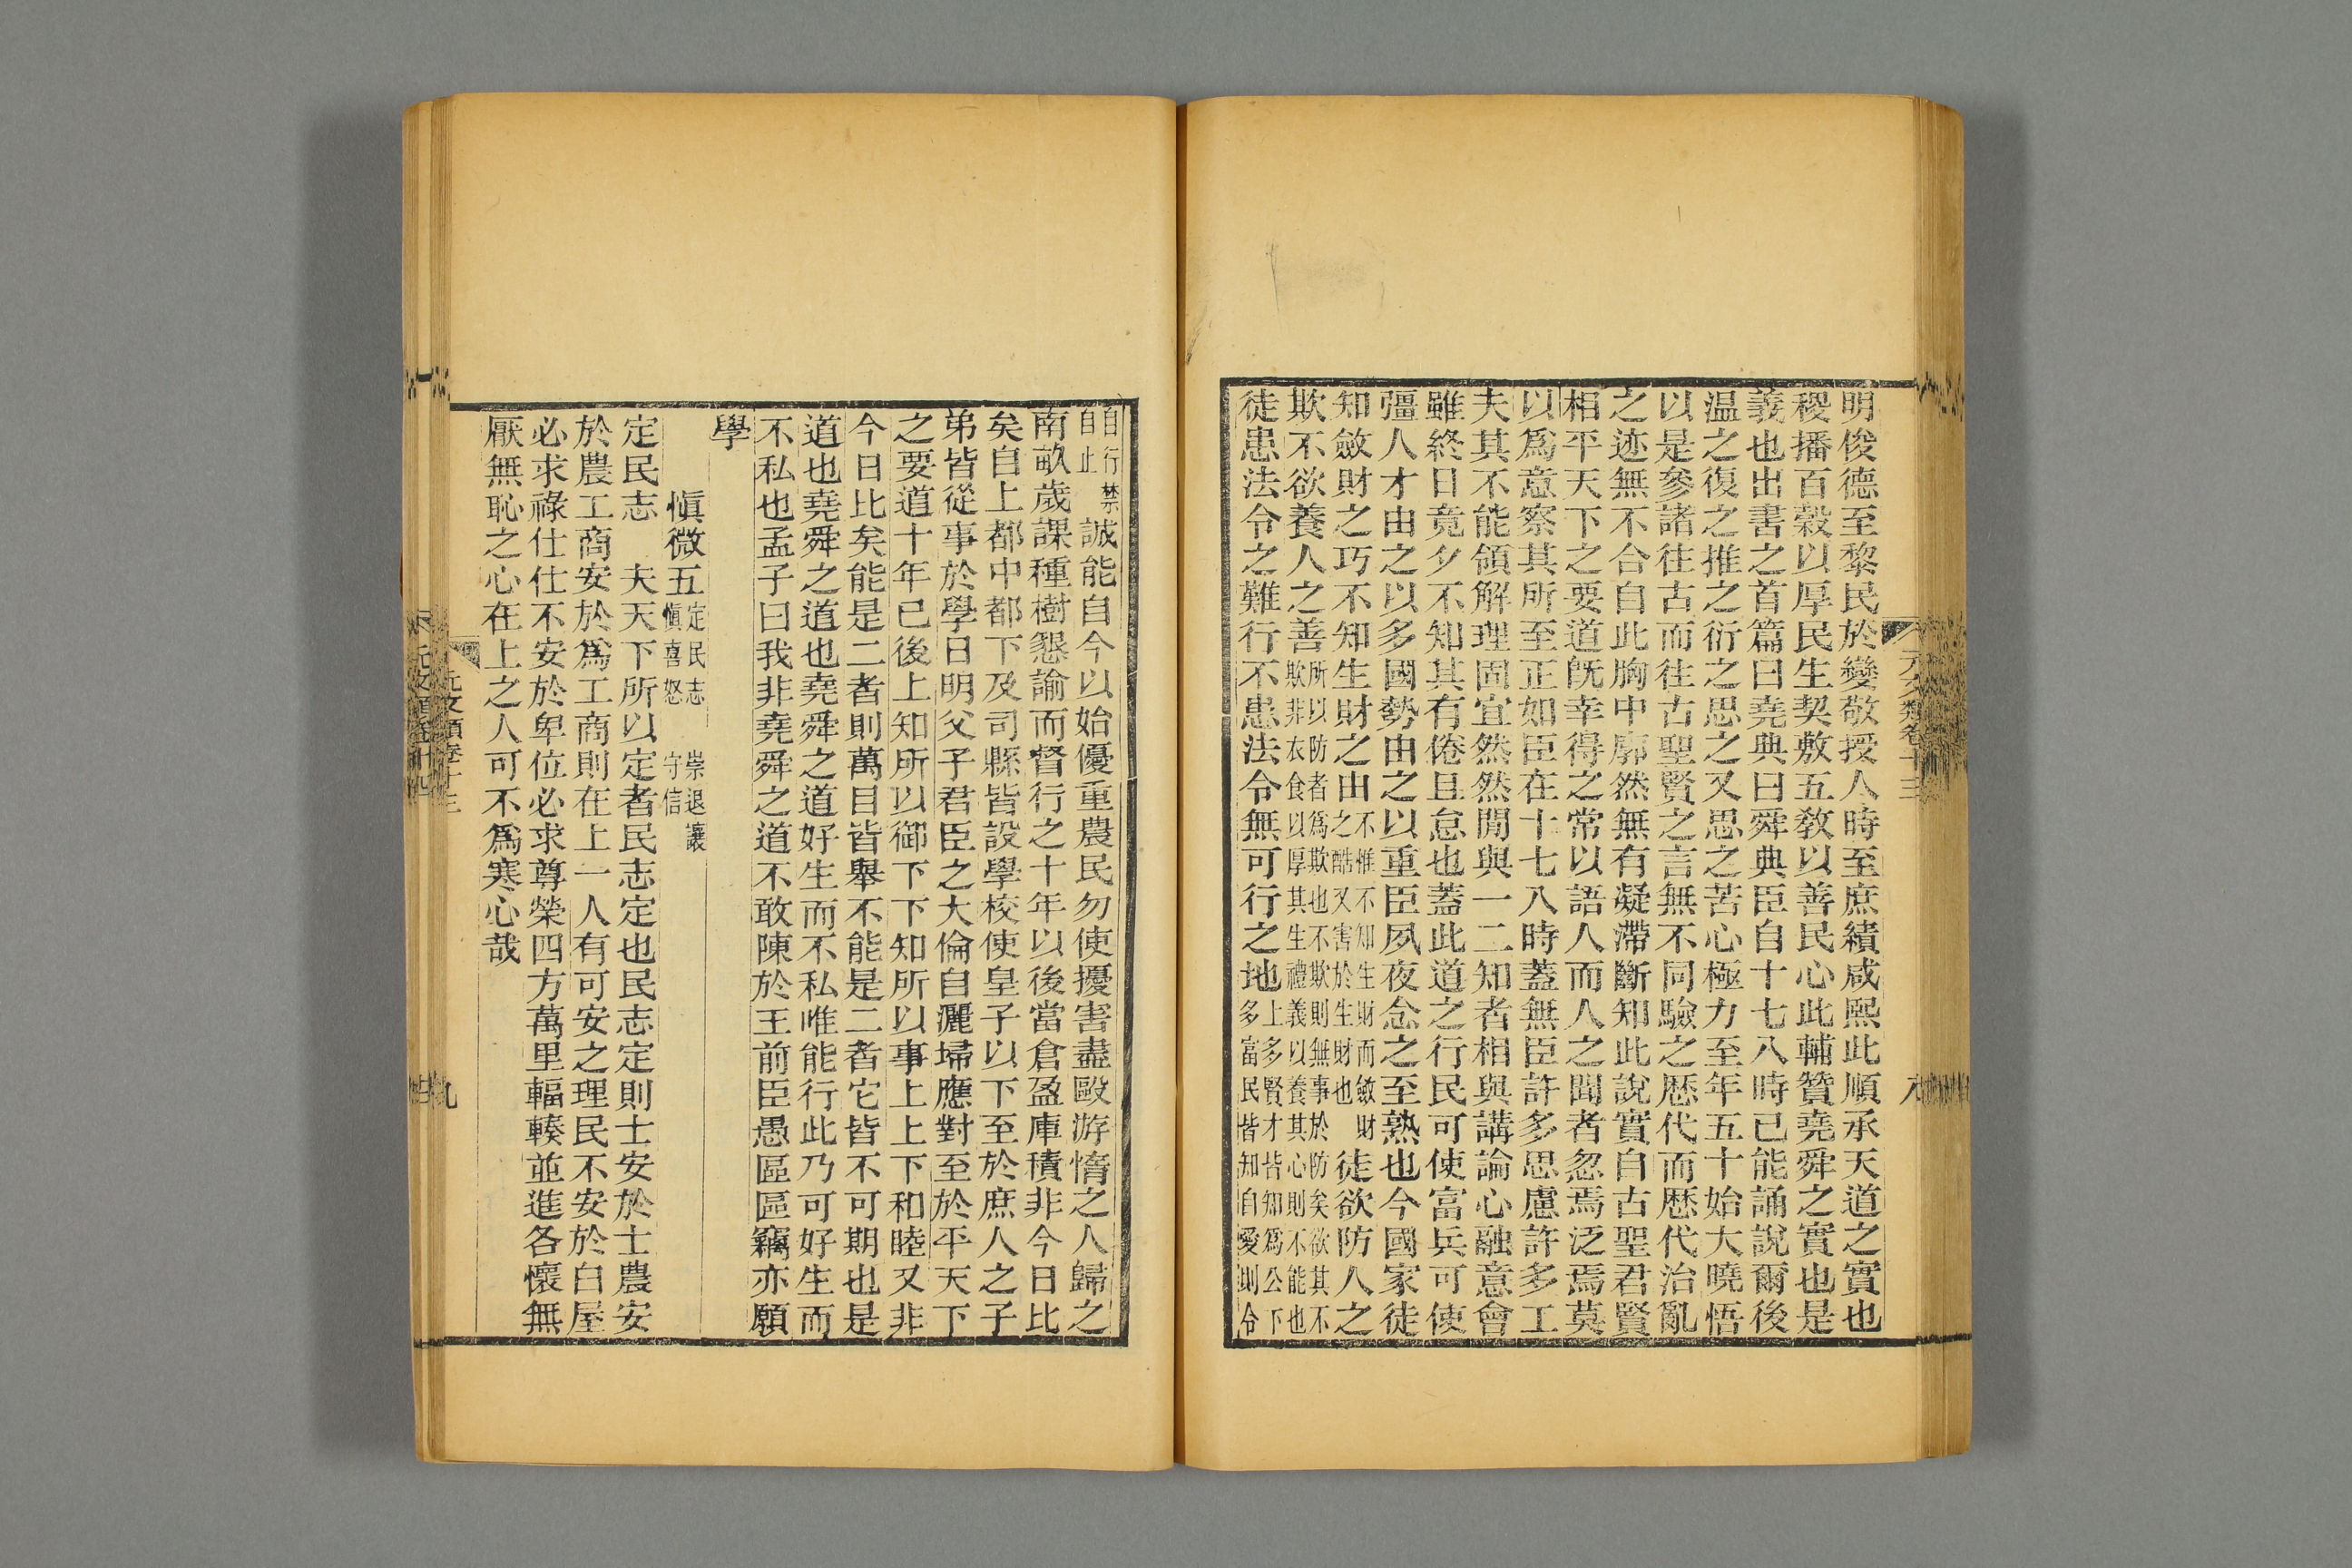 明俊德至黎民於變敬授人時至庶績咸熙此順承天道之實也
稷播百穀以厚民生契敷五敎以善民心此輔贊堯舜之實也是
義也出書之首篇曰堯典曰舜典臣自十七八時已能誦說爾後
温之復之推之衍之思之又思之苦心極力至年五十始大曉悟
以是參諸往古而往古聖賢之言無不同驗之歴代而歴代治亂
之迹無不合自此胸中廓然無有凝滯斷知此說實自古聖君賢
相平天下之要道旣幸得之常以語人而人之聞者忽焉泛焉莫
以爲意察其所至正如臣在十七八時蓋無臣許多思慮許多工
夫其不能領解理固宜然然閒與一二知者相與講論心融意會
雖終日竟夕不知其有倦且怠也蓋此道之行民可使富兵可使
彊人才由之以多國勢由之以重臣夙夜念之至熟也今國家徒
知斂財之巧不知生財之由不惟不知生財而斂財之酷又害於生財也徒欲防人之
欺不欲養人之善所以防者爲欺也不欺則無事於防矣欲其不欺非衣食以厚其生禮義以養其心則不能也
徒患法令之難行不患法令無可行之地上多賢才皆知爲公下多富民皆知自愛則令
元文類卷十三
八
自行禁自止誠能自今以始優重農民勿使擾害盡毆游惰之人歸之
南畝歲課種樹懇諭而督行之十年以後當倉盈庫積非今日比
矣自上都中都下及司縣皆設學校使皇子以下至於庶人之子
弟皆從事於學日明父子君臣之大倫自灑埽應對至於平天下
之要道十年已後上知所以御下下知所以事上上下和睦又非
今日比矣能是二者則萬目皆舉不能是二者它皆不可期也是
道也堯舜之道也堯舜之道好生而不私唯能行此乃可好生而
不私也孟子曰我非堯舜之道不敢陳於王前臣愚區區竊亦願
學
愼微五定民志 崇退讓愼喜怒 守信
定民志 夫天下所以定者民志定也民志定則士安於士農安
於農工商安於爲工商則在上一人有可安之理民不安於白屋
必求祿仕仕不安於卑位必求尊榮四方萬里輻輳並進各懷無
厭無恥之心在上之人可不爲寒心哉
元文類卷十三
九